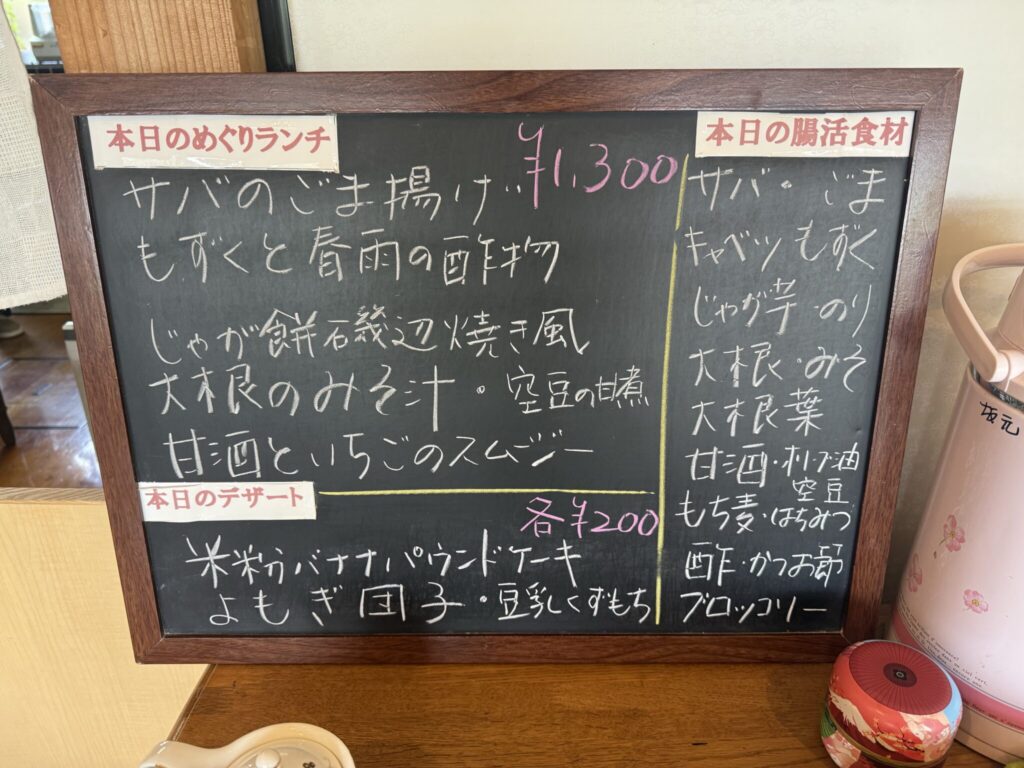 本日のめぐりランチ
¥1,300
サバのごま揚げ
もずくと春雨の酢物
じゃが餅磯辺焼き風
大根のみそ汁・空豆の甘煮
甘酒といちごのスムージー
本日のデザート
各¥200
米粉バナナパウンドケーキ
よもぎ団子・豆乳くずもち
本日の腸活食材
サバ・ごま
キャベツ もずく
じゃが芋 のり
大根・みそ
大根葉
甘酒・オリーブ油
空豆
もち麦・はちみつ
酢・かつお節
ブロッコリー
坂元